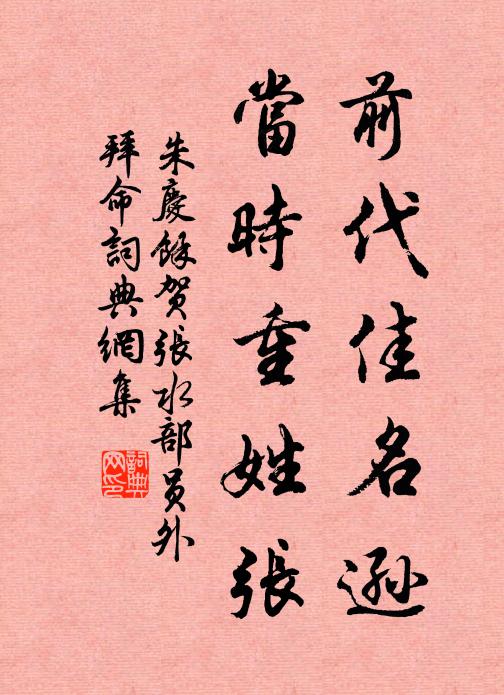 前代佳名遜
當時重姓張
朱慶餘賀張水部員外
拜命詞典網集
詞典
网印